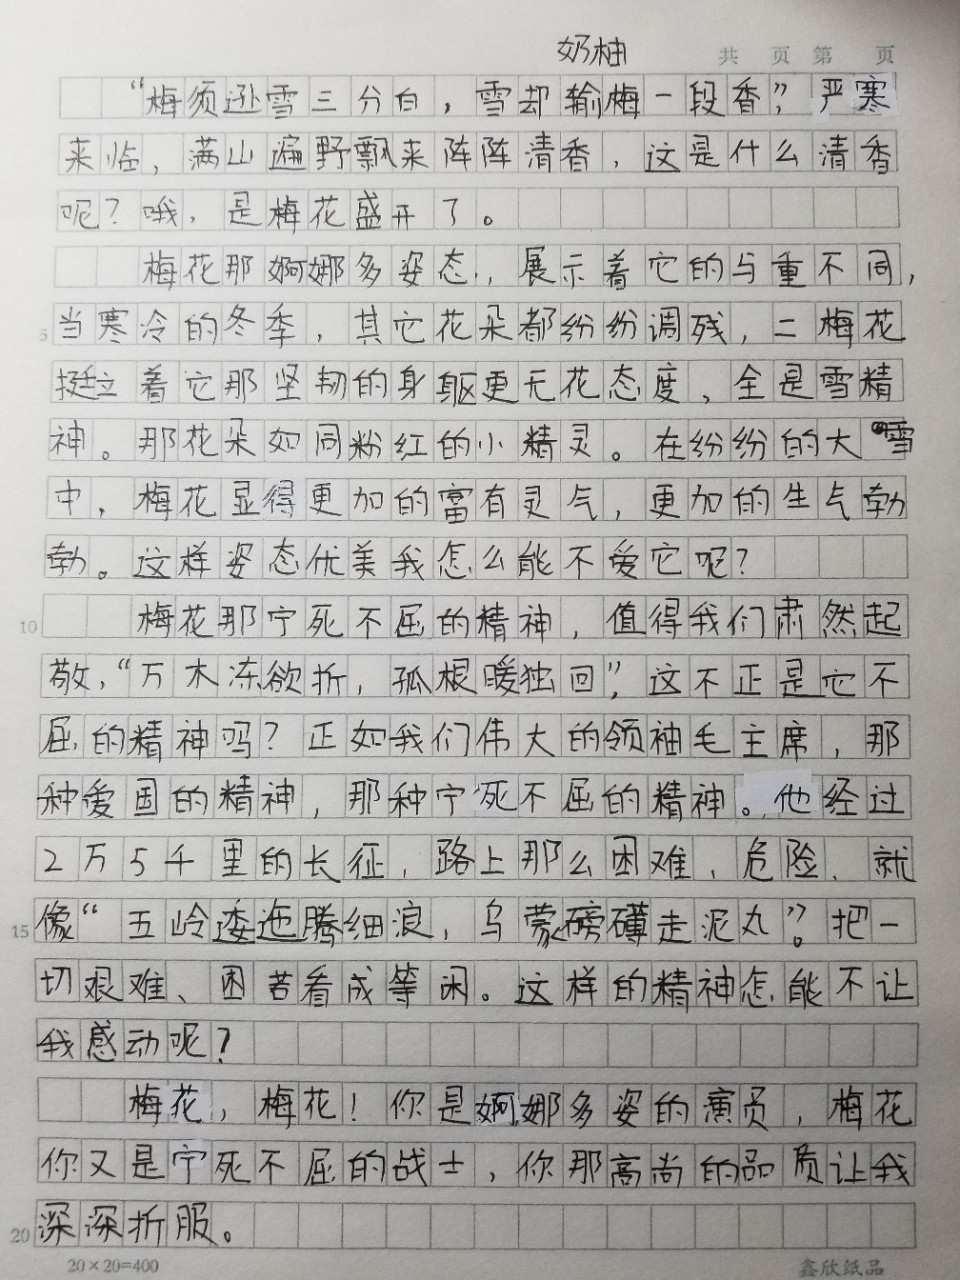 奶柚
共 页 第 页
“梅须逊雪三分白，雪却输梅一段香”，严寒
来临，满山遍野飘来阵阵清香，这是什么清香
呢？哦，是梅花盛开了。
梅花那婀娜多姿态，展示着它的与重不同，
5 当寒冷的冬季，其它花朵都纷纷调残，二梅花
挺立着它那坚韧的身躯更无花态度，全是雪精
神。那花朵如同粉红的小精灵。在纷纷的大雪
中，梅花显得更加的富有灵气，更加的生气勃
勃。这样姿态优美我怎么能不爱它呢？
10 梅花那宁死不屈的精神，值得我们肃然起
敬，“万木冻欲折，孤根暖独回”，这不正是它不
屈的精神吗？正如我们伟大的领袖毛主席，那
种爱国的精神，那种宁死不屈的精神。他经过
2万5千里的长征，路上那么困难，危险，就
15 像“五岭逶迤腾细浪，乌蒙磅礴走泥丸”。把一
切艰难、困苦看成等闲。这样的精神怎能不让
我感动呢？
梅花，梅花！你是婀娜多姿的演员，梅花
你又是宁死不屈的战士，你那高尚的品质让我
20 深深折服。
20×20=400 鑫欣纸品